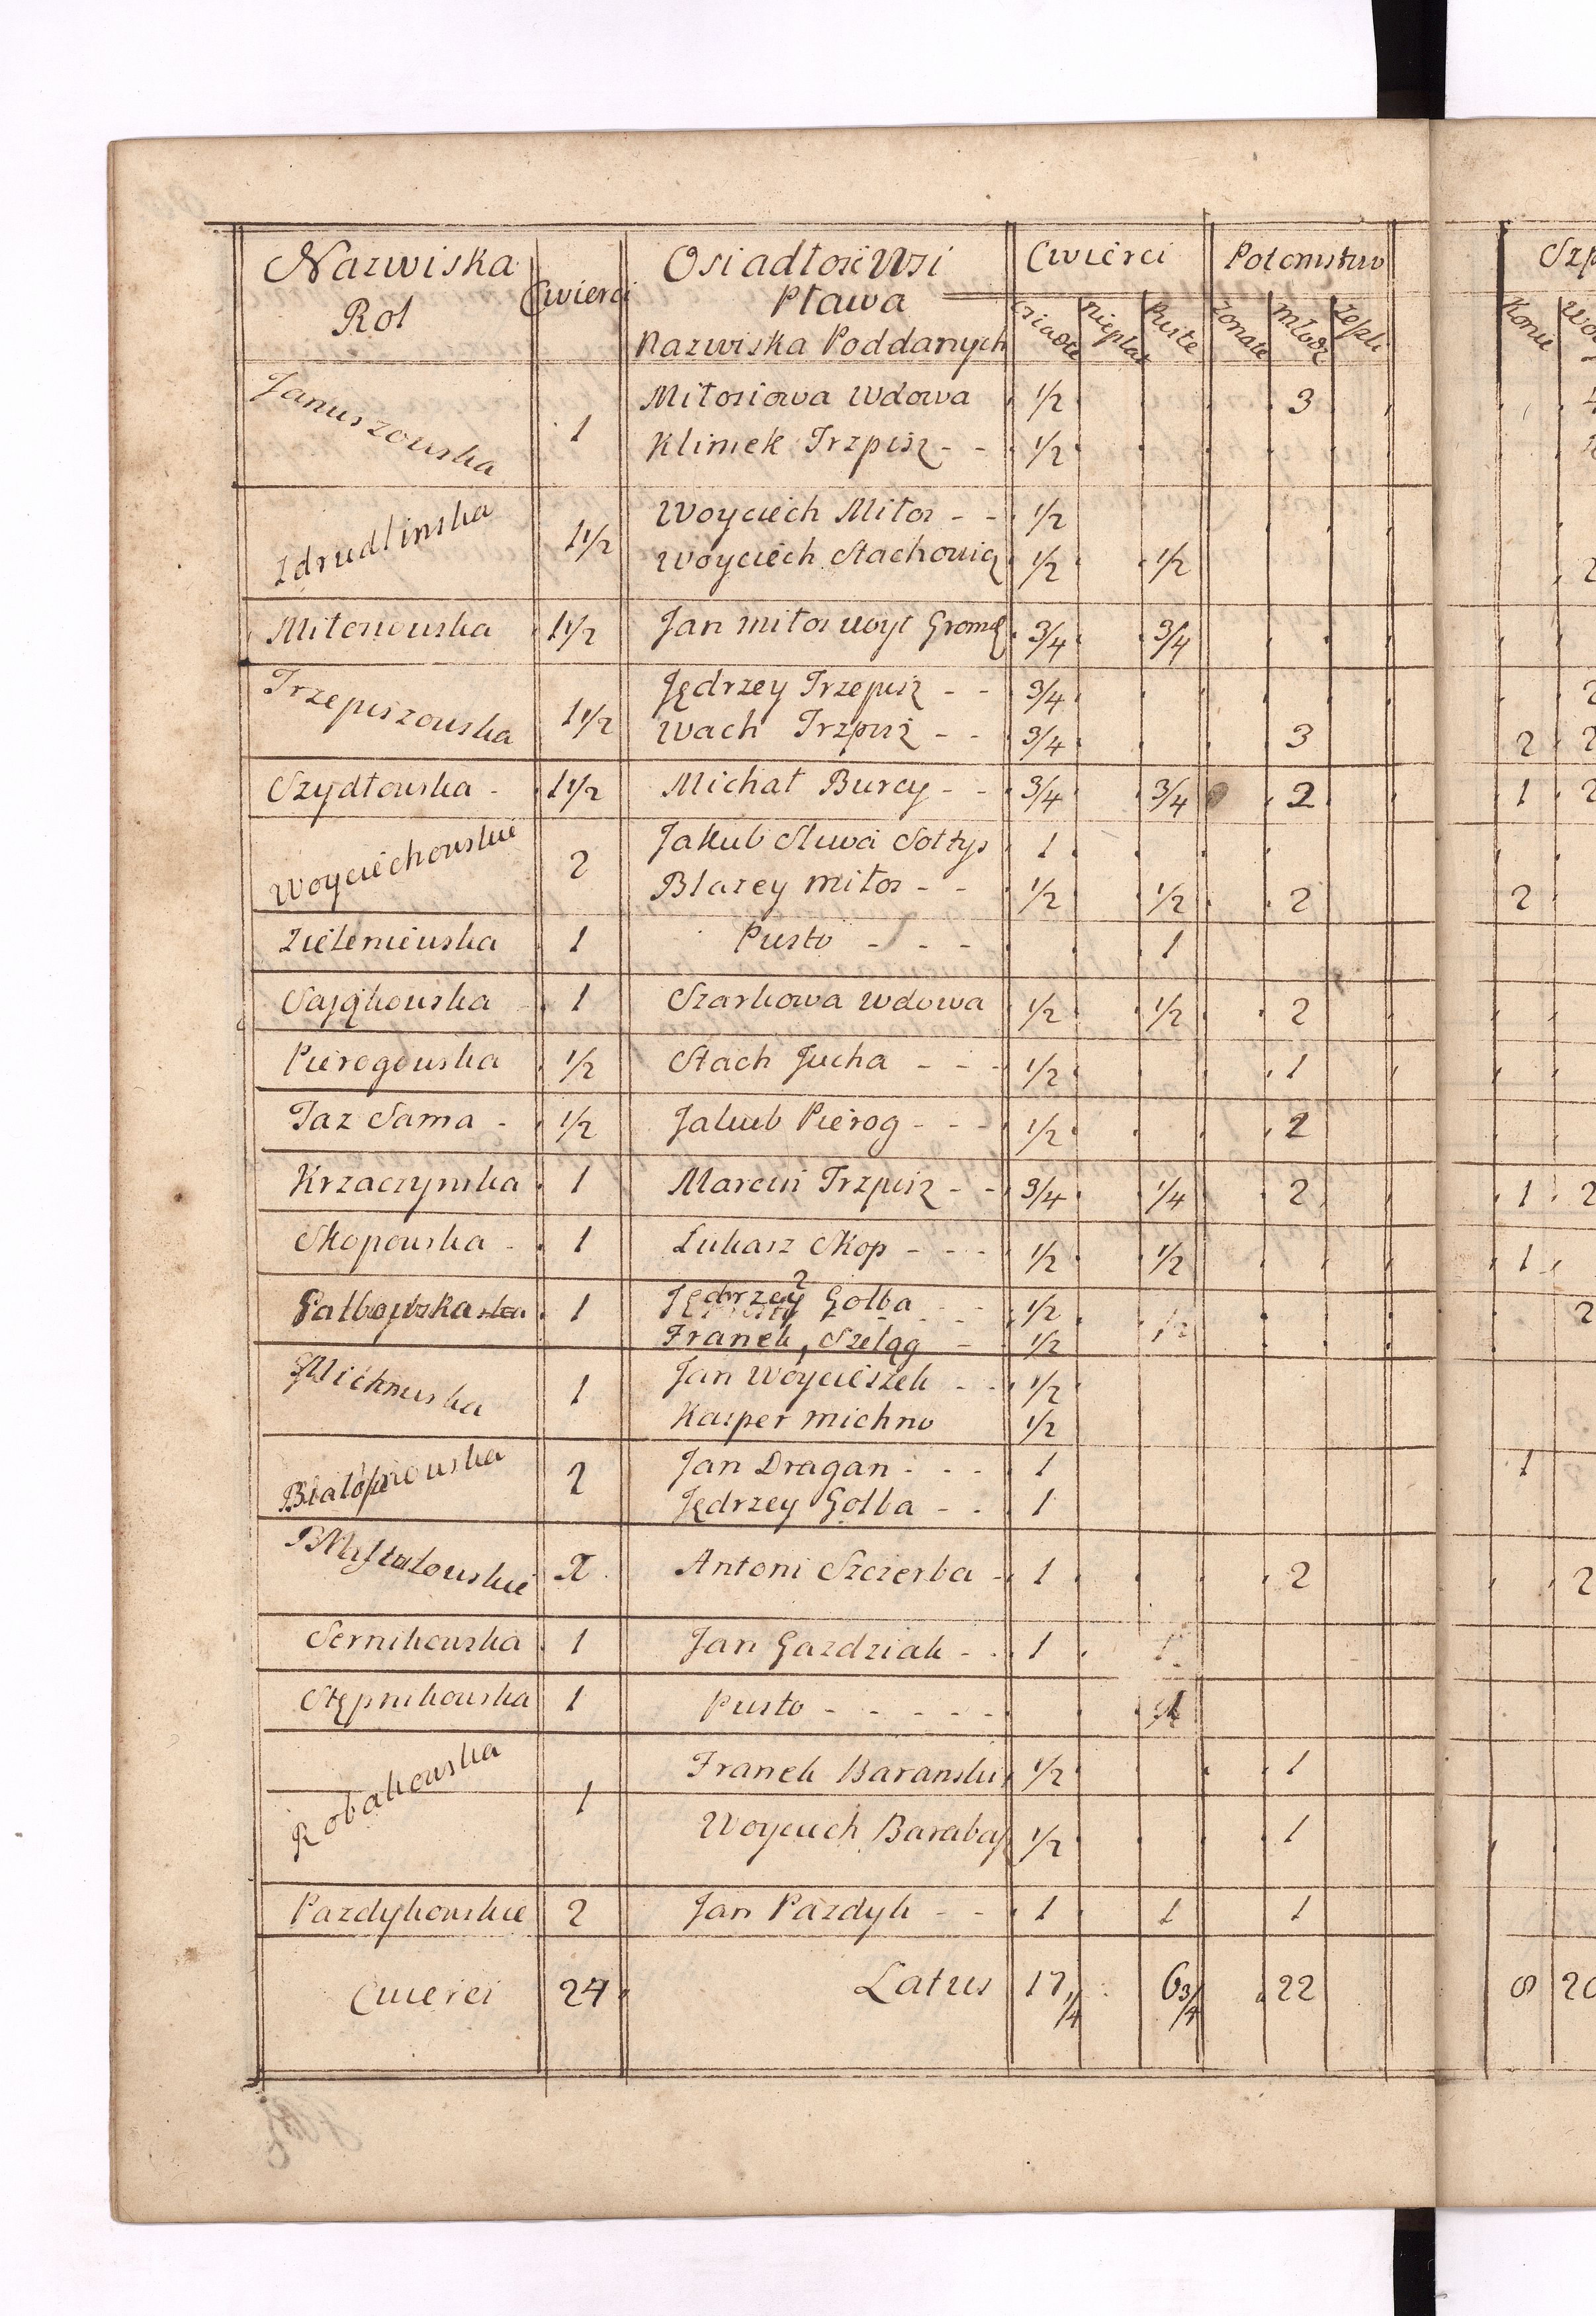 Nazwiska Rol | Cwierci | Osiadłość Wsi Pława Nazwiska Poddanych | Cwierci | Potomstwo | Szp
osiadłe | nieplat | Puste | Zonate | Młodz | Zeszli | Konie | Wo
Januszowska | 1 | Mitosiowa Wdowa | 1/2 | 3
Klimek Trzpisz - - | 1/2
Zdrudlinska | 1 1/2 | Woyciech Mitos - - | 1/2
Woyciech Stachowicz | 1/2 | 1/2 | 2
Mitosiowska | 1 1/2 | Jan mitos woyt Grom | 3/4 | 3/4
Trzepiszowska | 1 1/2 | Jędrzey Trzepisz - - | 3/4 | 2
Wach Trzpisz - - | 3/4 | 3 | 2 | 2
Szydłowska - | 1 1/2 | Michał Burcy - - | 3/4 | 3/4 | 2 | 1 | 2
Woyciechowskie | 2 | Jakub Sliwa Sołtys | 1
Błazey mitos - - | 1/2 | 1/2 | 2 | 2
Zieleniewska | 1 | Pusto - - - | 1
Sajątkowska | 1 | Szarkowa Wdowa | 1/2 | 1/2 | 2
Pierogowska | 1/2 | Stach Jucha - - - | 1/2 | 1
Taz Sama - | 1/2 | Jakub Pierog - - - | 1/2 | 2
Krzaczynska | 1 | Marcin Trzpisz - - | 3/4 | 1/4 | 2 | 1 | 2
Skopowska - | 1 | Lukasz Skop - - - | 1/2 | 1/2 | 1
1 | Jędrzey Gołba - - | 1/2 | 1/2 | 2
Franek Szeląg - | 1/2
Michnuska | 1 | Jan Woycieszek - - | 1/2
Kasper michno | 1/2
2 | Jan Dragan - - - | 1 | 1
Jędrzey Gołba - - | 1
2 | Antoni Szczerba - | 1 | 2 | 2
Sernikowska | 1 | Jan Gazdziak - - | 1
Stępnikowska | 1 | Pusto - - - - - | 1
Robakowska | 1 | Franek Baranski | 1/2 | 1
Woyciech Barabasz | 1/2 | 1
Pazdykowskie | 2 | Jan Pazdyk - - | 1 | 1 | 1
Cwierci | 24 | Latus | 17 1/4 | 6 3/4 | 22 | 8 | 20